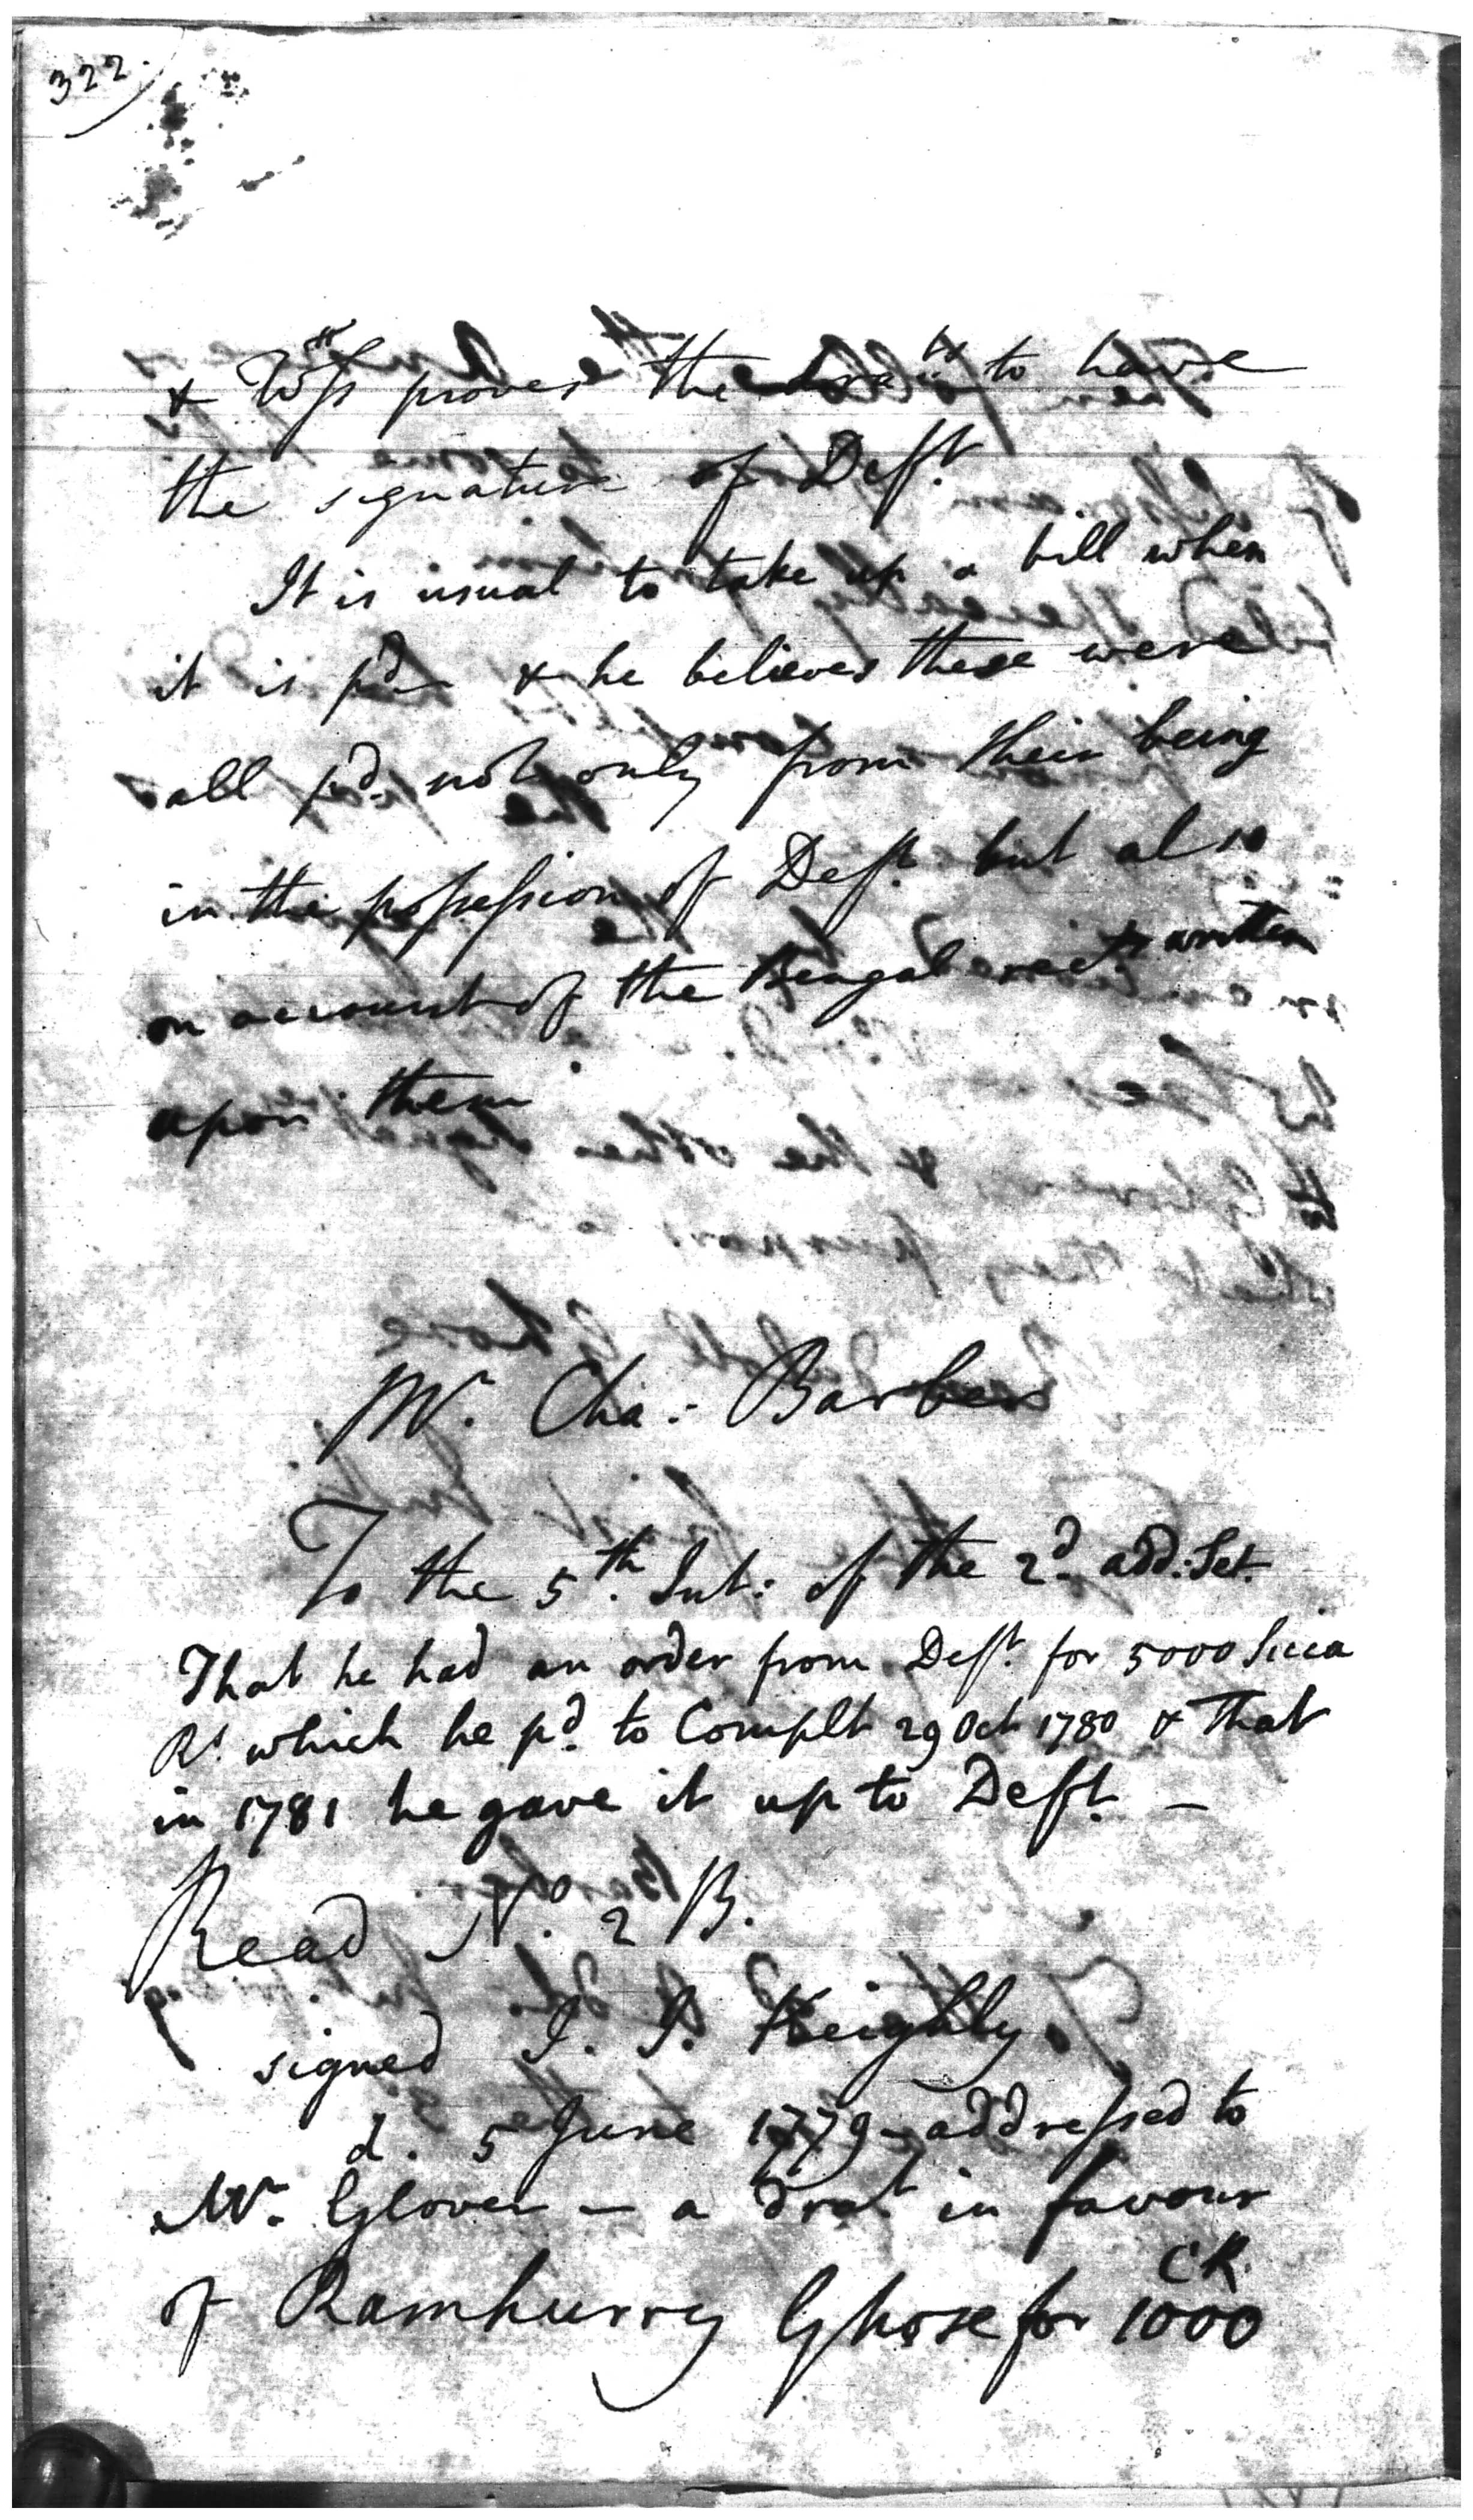 322
& Wss proves the dra.ts to have
the signature of Deft.
It is usual to take up a bill when
it is pd & he believes these were
all pd. not only from their being
in the possession of Deft. but also
on account of the Bengal rects written
upon them
Mr. Cha: Barber
To the 5th. Int: of the 2d. add: Set.
That he had an order from Deft. for 5000 Sicca
Rs. which he pd. to Complt 29 Oct 1780 & that
in 1781 he gave it up to Deft. —
Read No. 2 B.
signed J. J. Keighly.
d. 5 June 1779 - addressed to
Mr. Glover — a draft in favour
of Ramhurry Ghose for 1000 CR.